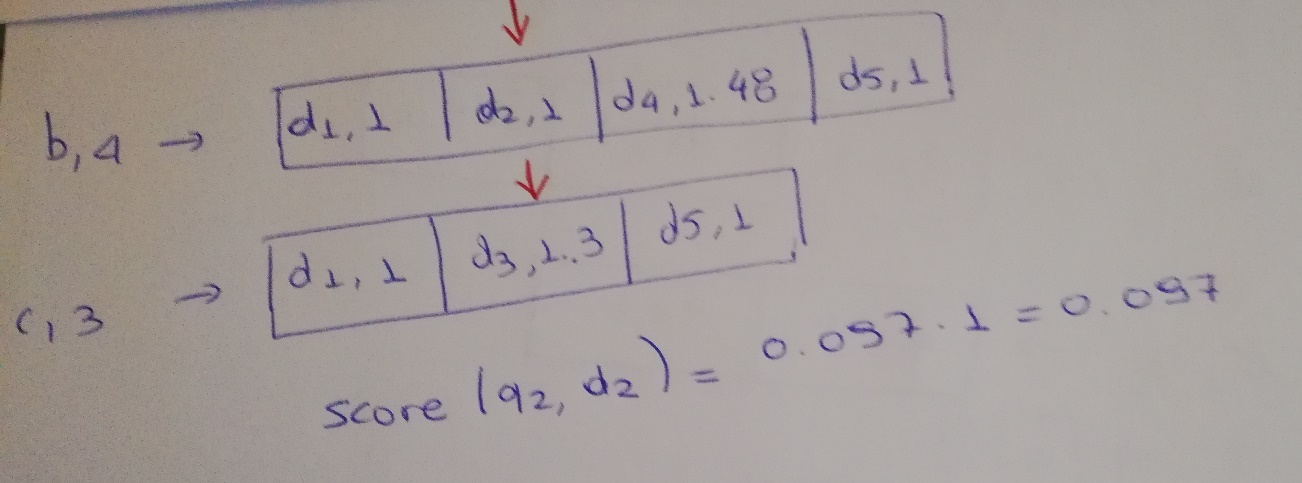 b,4 → d1,1 d2,1 d4,1.48 d5,1
c,3 → d1,1 d3,1.3 d5,1
score (q2, d2) = 0.097.1 = 0.097